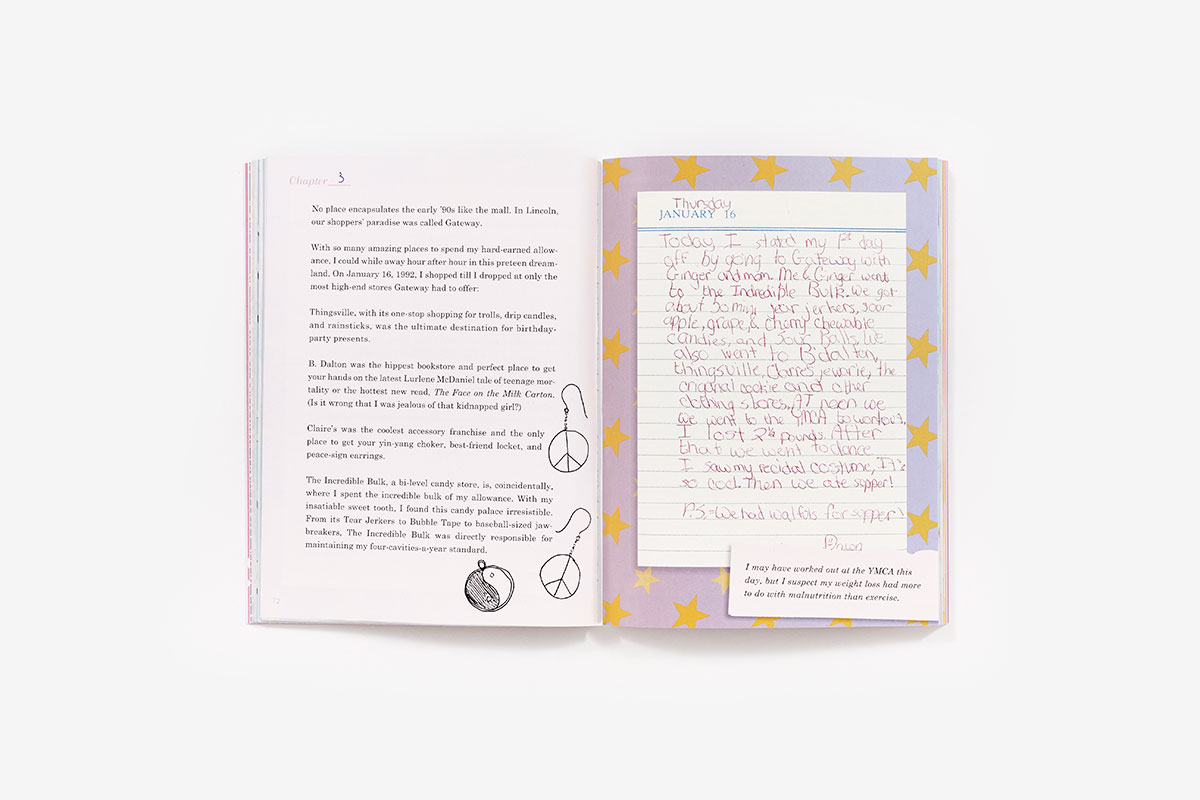 Chapter 3
No place encapsulates the early '90s like the mall. In Lincoln,
our shoppers' paradise was called Gateway.
With so many amazing places to spend my hard-earned allow-
ance, I could while away hour after hour in this preteen dream-
land. On January 16, 1992, I shopped till I dropped at only the
most high-end stores Gateway had to offer:
Thingsville, with its one-stop shopping for trolls, drip candles,
and rainsticks, was the ultimate destination for birthday-
party presents.
B. Dalton was the hippest bookstore and perfect place to get
your hands on the latest Lurlene McDaniel tale of teenage mor-
tality or the hottest new read, The Face on the Milk Carton.
(Is it wrong that I was jealous of that kidnapped girl?)
Claire's was the coolest accessory franchise and the only
place to get your yin-yang choker, best-friend locket, and
peace-sign earrings.
The Incredible Bulk, a bi-level candy store, is, coincidentally,
where I spent the incredible bulk of my allowance. With my
insatiable sweet tooth, I found this candy palace irresistible.
From its Tear Jerkers to Bubble Tape to baseball-sized jaw-
breakers, The Incredible Bulk was directly responsible for
maintaining my four-cavities-a-year standard.
12
Thursday
JANUARY 16
Today, I statd my 1st day
off by going to Gateway with
Ginger and mom. Me & Ginger went
to the Indredible Bulk. We got
about 50 mini year jerkers, sour
apple, grape, & cherry chewable
candies, and Sour Balls. We
also went to B'dalten,
thingsville, Clares jewlrie, the
original cookie and other
clothing stores. AT noon we
we went to the YMCA to workout.
I lost 2½ pounds. After
that we went to dance
I saw my recidal costume, IT's
so cool. Then we ate supper!
P.S.=We had walfols for supper!
I may have worked out at the YMCA this
day, but I suspect my weight loss had more
to do with malnutrition than exercise.